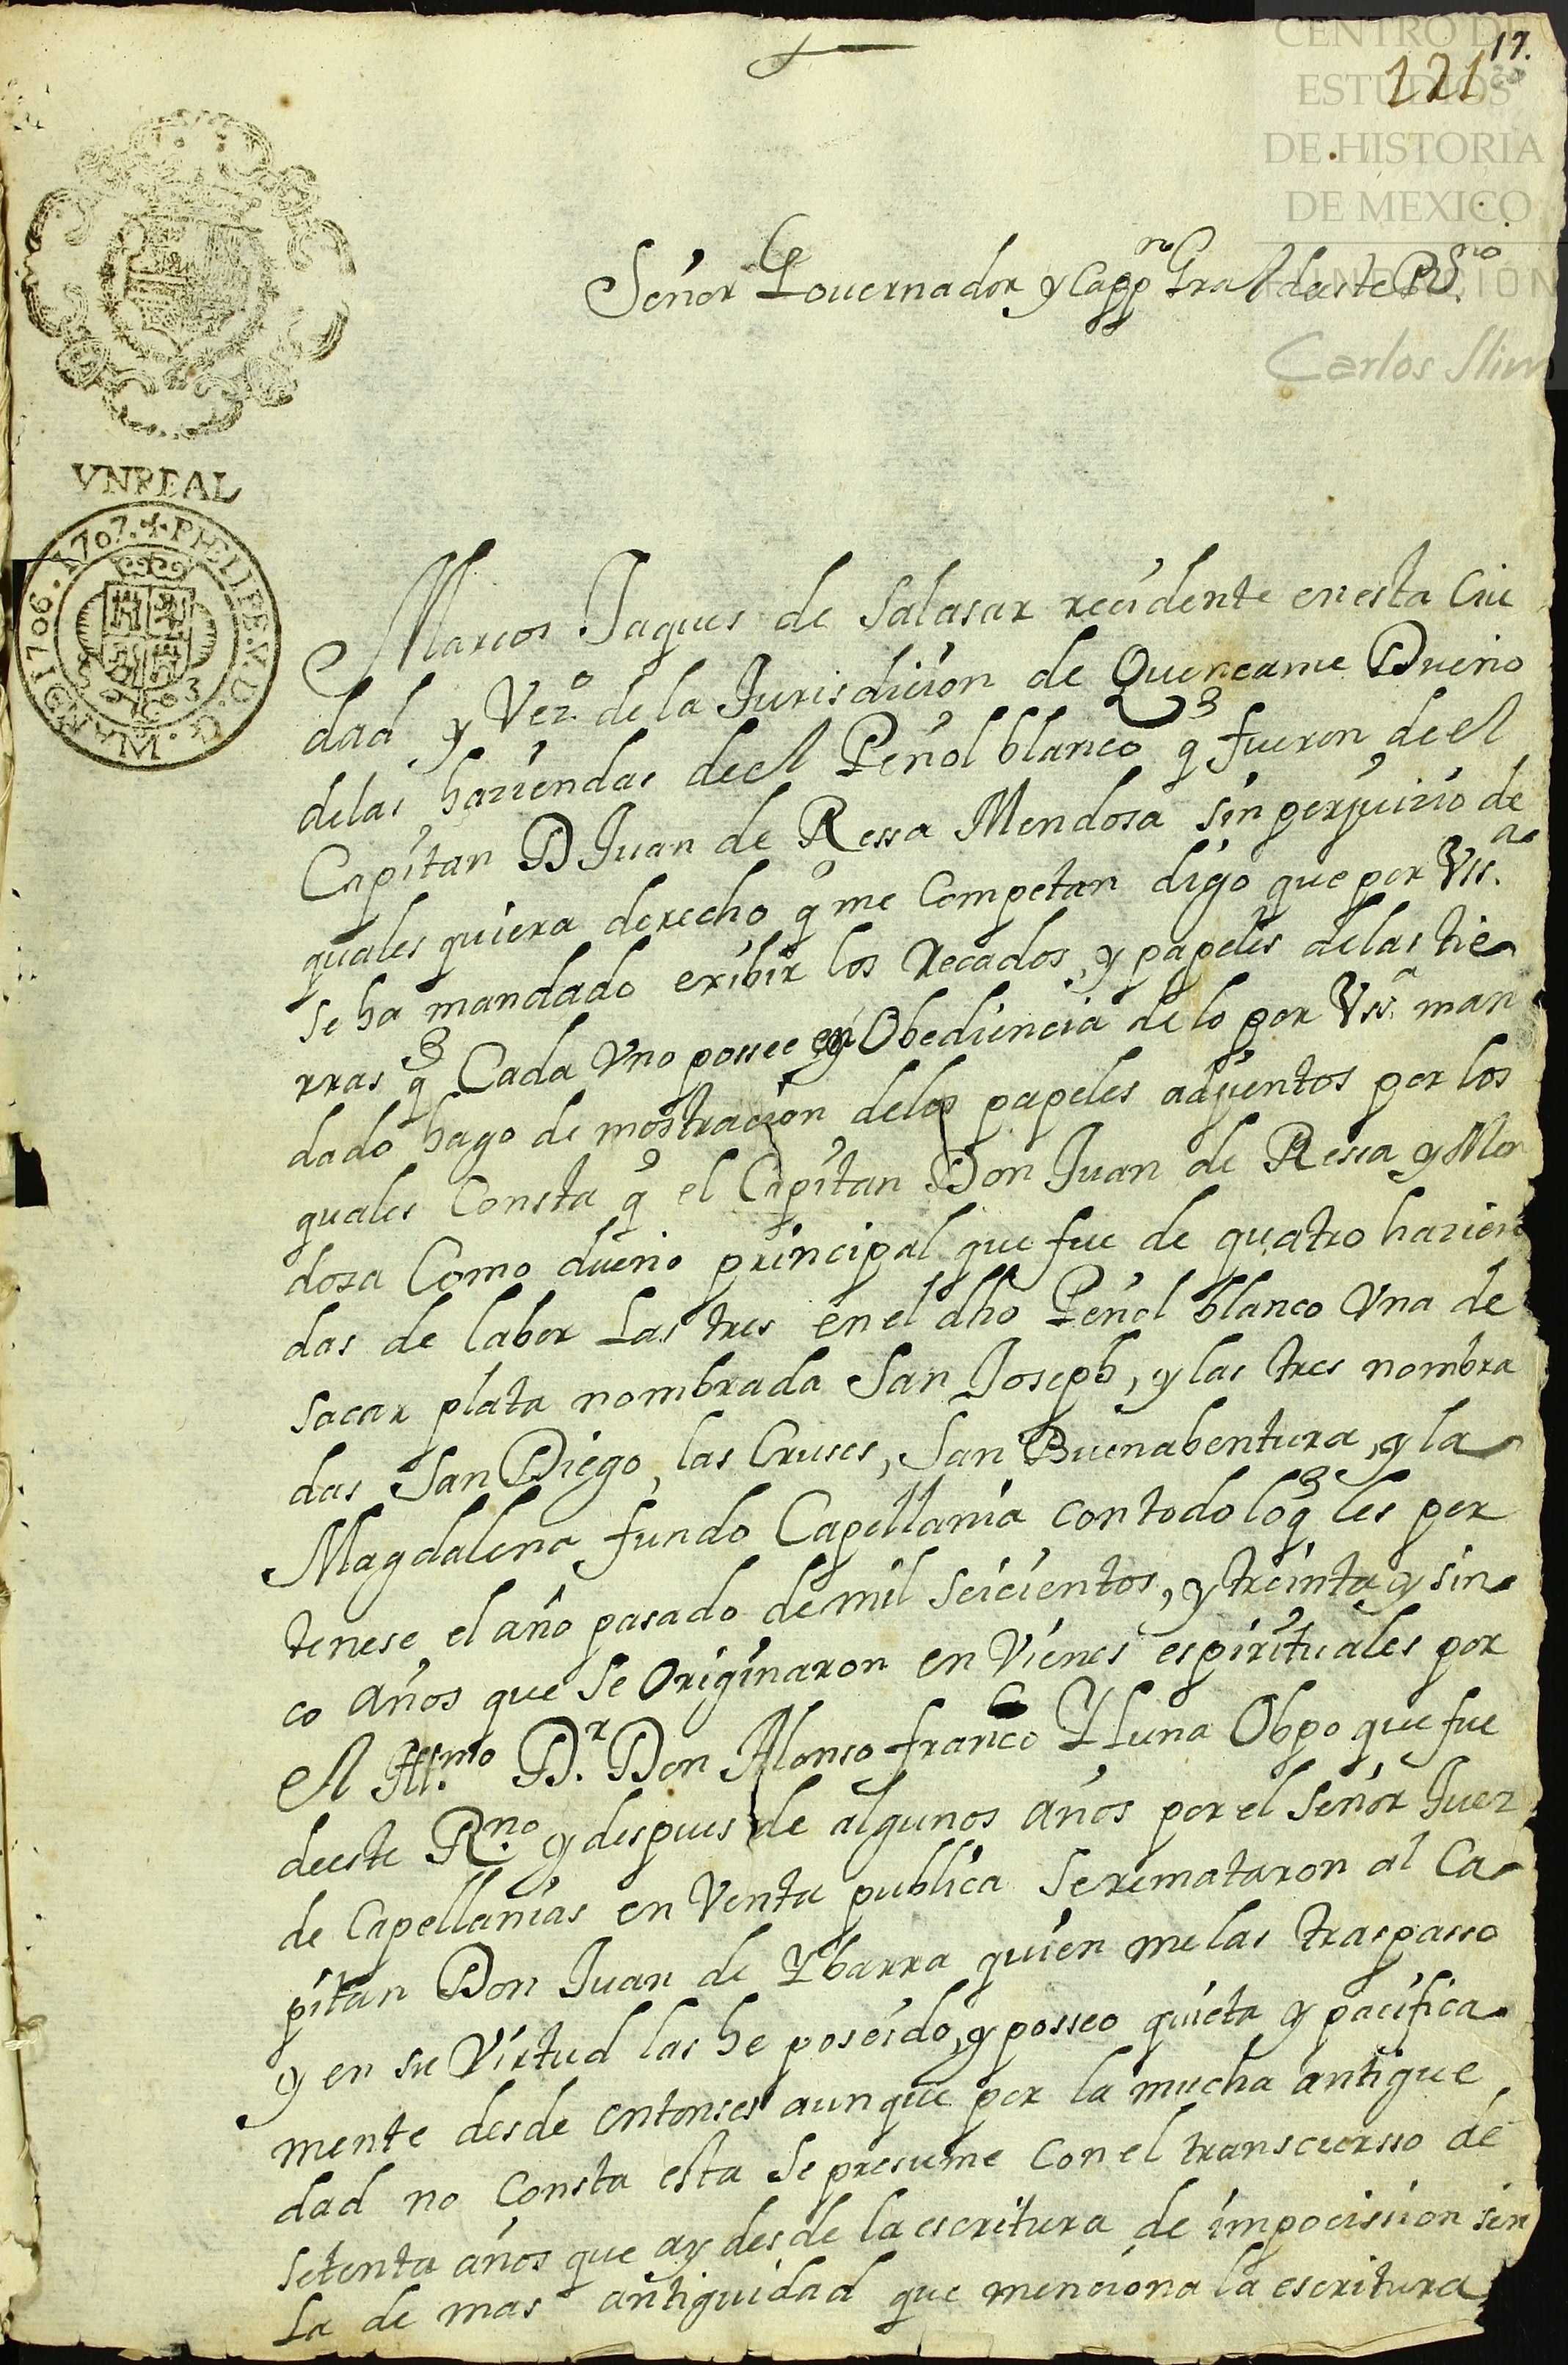 CENTRO DE
ESTUDIOS
DE HISTORIA
DE MEXICO
FUNDACIÓN
Carlos Slim
17.
121
Señor Governador y Cappn Gral deeste Rno
VNREAL
1706. 1707. PHILIPE. V. D. G.
Marcos Jaques de Salasar recidente en esta Ciu
dad y Vezo. de la Jurisdicion de Quencame Dueño
delas haziendas de el Peñol blanco q fueron de el
Capitan D Juan de Ressa Mendosa sin perjuizio de
quales quiera derecho q me Competan digo que por Vss.a
se ha mandado exibir los Recados, y papeles delas tie
rras q Cada Vno possee en Obediencia de lo por Vss.a man
dado hago de mostracion delos papeles adjuntos por los
quales Consta q el Capitan Don Juan de Ressa y Men
dosa Como dueño principal que fue de quatro hazien
das de labor Las tres en el dho Peñol blanco Vna de
sacar plata nombrada San Joseph, y las tres nombra
das San Diego, las Cruses, San Buenabentura, y la
Magdalena fundo Capellania con todo lo q les per
tenese el año pasado de mil seicientos, y treinta y sin
co años que se Originaron en Vienes espirituales por
el Illmo. Dr. Don Alonso franco Y Luna Obpo que fue
deeste Rno. y despues de algunos años por el señor Juez
de Capellanias en Venta publica se remataron al Ca
pitan Don Juan de Ybarra quien me las traspasso
y en su Virtud las he poseido, y posseo quieta y pacifica
mente desde entonses aunque por la mucha antigue
dad no Consta esta se presume Con el transcursso de
setenta años que ay desde la escritura de impocission sin
La de mas antiguidad que menciona la escritura